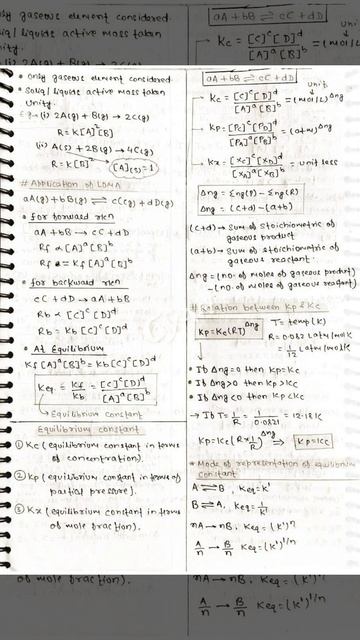 • Only gaseous element considered.
• Solid/liquids active mass taken
unity.
Eg:- (i) 2A(g) + B(g) → 2C(g)
R = K[A]²[B]
(ii) A(s) + 2B(g) → 4C(g)
R = K[B]² → [A](s) = 1
# Application of LOMA
aA(g) + bB(g) ⇌ cC(g) + dD(g)
• for forward rxn
aA + bB → cC + dD
Rf ∝ [A]ᵃ[B]ᵇ
Rf = Kf [A]ᵃ[B]ᵇ
• for backward rxn
cC + dD → aA + bB
Rb ∝ [C]ᶜ[D]ᵈ
Rb = Kb [C]ᶜ[D]ᵈ
• At Equilibrium
Kf[A]ᵃ[B]ᵇ = Kb[C]ᶜ[D]ᵈ
Keq = Kf/Kb = [C]ᶜ[D]ᵈ/[A]ᵃ[B]ᵇ
→ Equilibrium constant
Equilibrium constant
① Kc (equilibrium constant in terms
of concentration).
② Kp (equilibrium constant in terms of
partial pressure).
③ Kx (equilibrium constant in terms
of mole fraction).
aA + bB ⇌ cC + dD
unit
→ Kc = [C]ᶜ[D]ᵈ/[A]ᵃ[B]ᵇ = (mol/L)^Δng
→ Kp = [Pc]ᶜ[PD]ᵈ/[PA]ᵃ[PB]ᵇ = (atm)^Δng
→ Kx = [Xc]ᶜ[XD]ᵈ/[XA]ᵃ[XB]ᵇ = unit less
Δng = Σng(P) − Σng(R)
Δng = (c+d) − (a+b)
(c+d) → Sum of stoichiometric of
gaseous product
(a+b) → sum of stoichiometric of
gaseous reactant.
Δng = (no. of moles of gaseous product)
− (no. of moles of gaseous reactant)
# Relation between Kp & Kc
Kp = Kc(RT)^Δng
T = temp(K)
R = 0.0821 atm/mol K
= 1/12 L atm/mol K
• If Δng = 0 then Kp = Kc
• If Δng > 0 then Kp > Kc
• If Δng < 0 then Kp < Kc
→ If T = 1/R = 1/0.0821 = 12.18 K
Kp = Kc (R × 1/R)^Δng ⇒ Kp = Kc
* Mode of representation of equilibrium
constant
A ⇌ B, Keq = K'
B ⇌ A, Keq = 1/K'
nA → nB, Keq = (K')ⁿ
A/n → B/n Keq = (K')^1/n